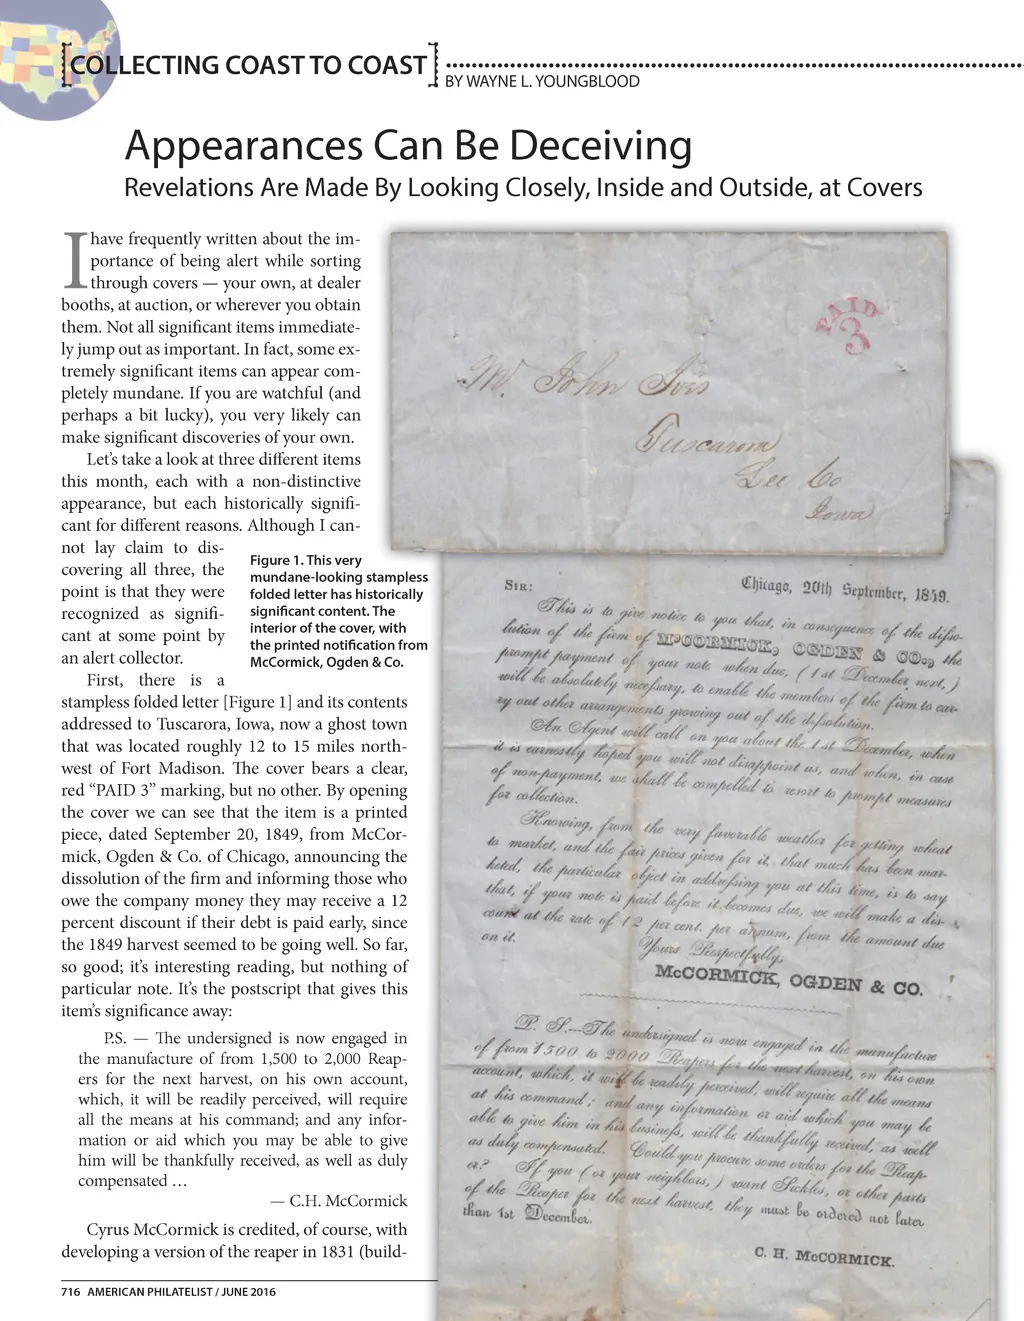 [COLLECTING COAST TO COAST]
BY WAYNE L. YOUNGBLOOD
Appearances Can Be Deceiving
Revelations Are Made By Looking Closely, Inside and Outside, at Covers
I have frequently written about the im-
portance of being alert while sorting
through covers — your own, at dealer
booths, at auction, or wherever you obtain
them. Not all significant items immediate-
ly jump out as important. In fact, some ex-
tremely significant items can appear com-
pletely mundane. If you are watchful (and
perhaps a bit lucky), you very likely can
make significant discoveries of your own.
Let's take a look at three different items
this month, each with a non-distinctive
appearance, but each historically signifi-
cant for different reasons. Although I can-
not lay claim to dis-
covering all three, the
point is that they were
recognized as signifi-
cant at some point by
an alert collector.
First, there is a
stampless folded letter [Figure 1] and its contents
addressed to Tuscarora, Iowa, now a ghost town
that was located roughly 12 to 15 miles north-
west of Fort Madison. The cover bears a clear,
red “PAID 3” marking, but no other. By opening
the cover we can see that the item is a printed
piece, dated September 20, 1849, from McCor-
mick, Ogden & Co. of Chicago, announcing the
dissolution of the firm and informing those who
owe the company money they may receive a 12
percent discount if their debt is paid early, since
the 1849 harvest seemed to be going well. So far,
so good; it's interesting reading, but nothing of
particular note. It's the postscript that gives this
item's significance away:
P.S. — The undersigned is now engaged in
the manufacture of from 1,500 to 2,000 Reap-
ers for the next harvest, on his own account,
which, it will be readily perceived, will require
all the means at his command; and any infor-
mation or aid which you may be able to give
him will be thankfully received, as well as duly
compensated …
— C.H. McCormick
Cyrus McCormick is credited, of course, with
developing a version of the reaper in 1831 (build-
Figure 1. This very
mundane-looking stampless
folded letter has historically
significant content. The
interior of the cover, with
the printed notification from
McCormick, Ogden & Co.
PAID
3
Mr. John Ivis
Tuscarora
Lee Co
Iowa
Chicago, 20th September, 1849.
SIR:
This is to give notice to you that, in consequence of the disso-
lution of the firm of McCORMICK, OGDEN & CO., the
prompt payment of your note when due, (1st December next,)
will be absolutely necessary, to enable the members of the firm to car-
ry out other arrangements growing out of the dissolution.
An Agent will call on you about the 1st December, when
it is earnestly hoped you will not disappoint us, and when, in case
of non-payment, we shall be compelled to resort to prompt measures
for collection.
Knowing, from the very favorable weather for getting wheat
to market, and the fair prices given for it, that much has been mar-
keted, the particular object in addressing you at this time, is to say
that, if your note is paid before it becomes due, we will make a dis-
count at the rate of 12 per cent. per annum, from the amount due
on it.
Yours Respectfully,
McCORMICK, OGDEN & CO.
P. S.—The undersigned is now engaged in the manufacture
of from 1500 to 2000 Reapers for the next harvest, on his own
account, which, it will be readily perceived, will require all the means
at his command; and any information or aid which you may be
able to give him in his business, will be thankfully received, as well
as duly compensated. Could you procure some orders for the Reap-
er? If you (or your neighbors,) want Sickles, or other parts
of the Reaper for the next harvest, they must be ordered not later
than 1st December.
C. H. McCORMICK.
716 AMERICAN PHILATELIST / JUNE 2016